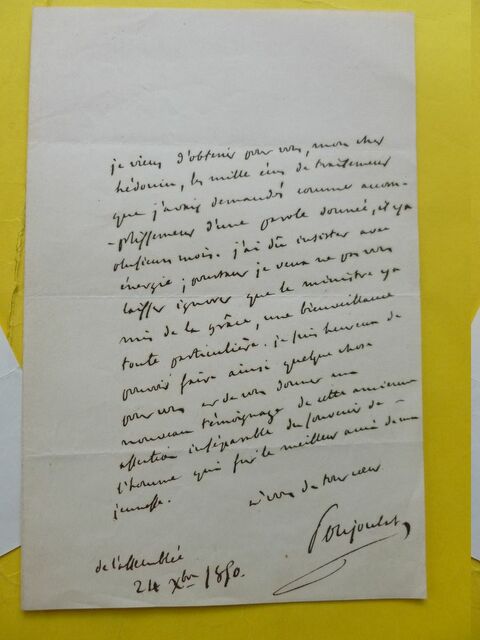 je viens d'obtenir pour vous, mon cher
hédouin, les mille écus de traitement
que j'avais demandés comme accom-
-plissement d'une parole donnée, il y a
plusieurs mois. j'ai dû insister avec
énergie; pourtant je veux ne pas vous
laisser ignorer que le ministre y a
mis de la grâce, une bienveillance
toute particulière. je suis heureux de
pouvoir faire ainsi quelque chose
pour vous et de vous donner un
nouveau témoignage de cette ancienne
affection inséparable du souvenir de
l'homme qui fut le meilleur ami de ma
jeunesse.
à vous de tout cœur
Poujoulat
de l'assemblée
24 Xbre 1850.